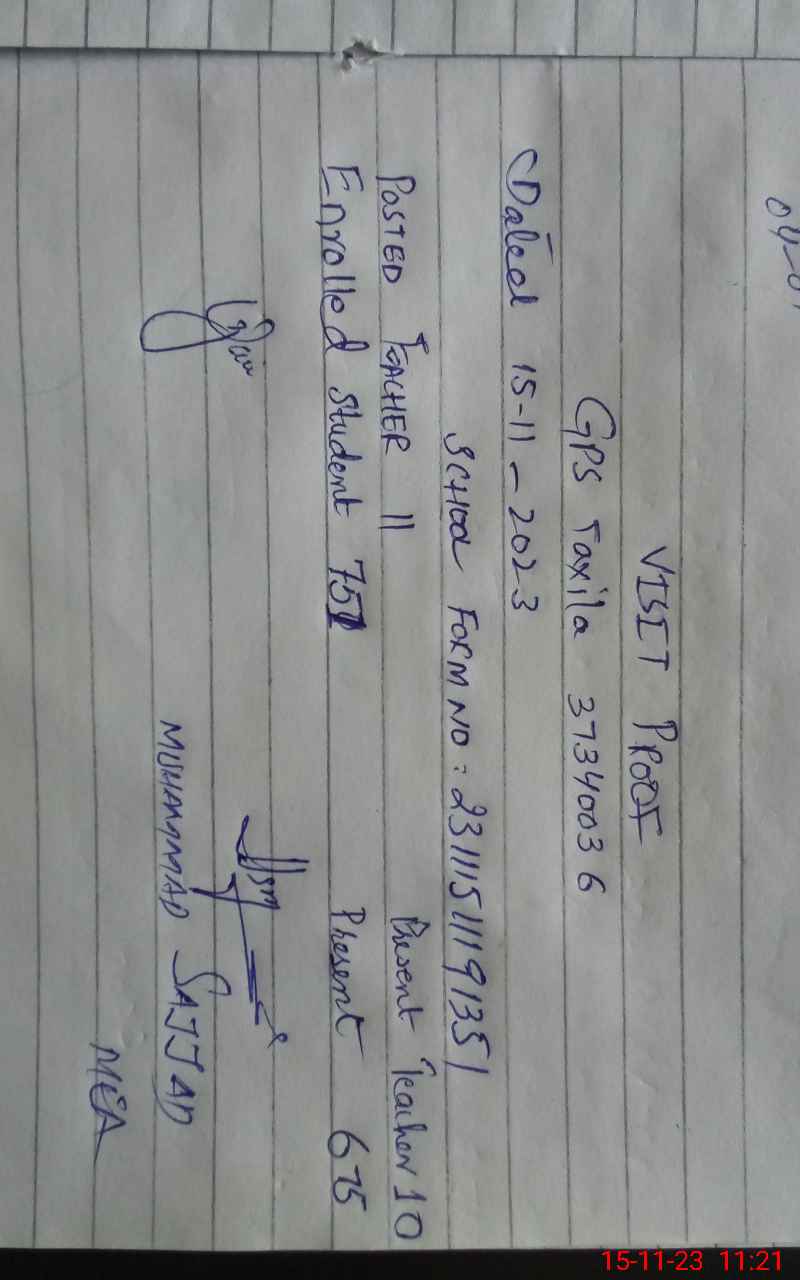 VISIT PROOF
GPS Taxila 37340036
Dated 15-11-2023
SCHOOL FORM NO: 231115111919351
POSTED TEACHER 11 Present Teacher 10
Enrolled Student 751 Present 675
MUHAMMAD SAJJAD
MEA
15-11-23 11:21